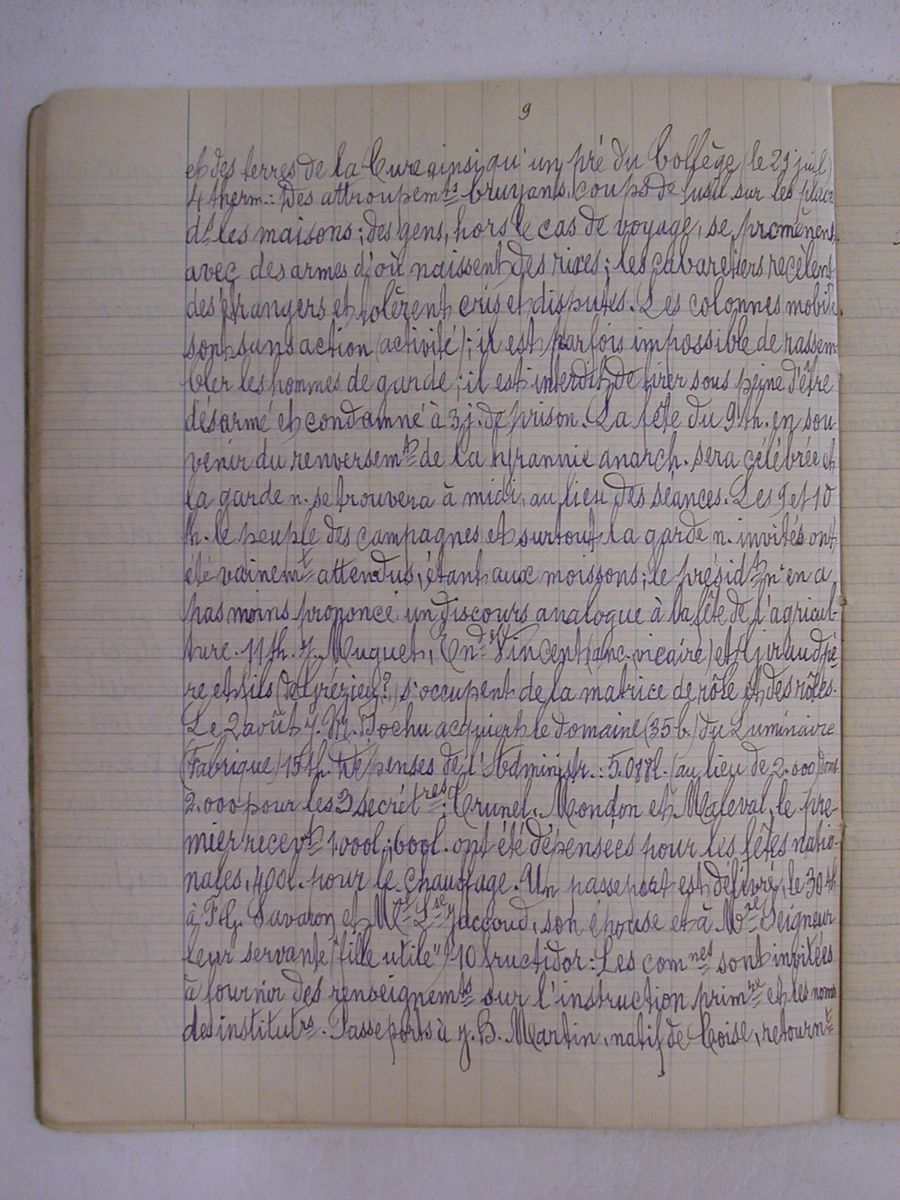 9
et des terres de la Cure ainsi qu'un pré du Collège (le 29 juil)
4 therm.: Des attroupemts bruyans, coups de fusil sur les places
dt les maisons; des gens, hors le cas de voyage, se promènent
avec des armes d'où naissent des rixes; les cabaretiers recèlent
des étrangers et tolèrent cris et disputes. Les colonnes mobiles
sont sans action (activité); il est parfois impossible de rassem
bler les hommes de garde; il est interdit de tirer sous peine d'être
désarmé et condamné à 3 j. de prison. La fête du 9 th. en sou
venir du renversemt de la tyrannie anarch. sera célébrée et
la garde n. se trouvera à midi au lieu des séances. Les 9 et 10
th. le peuple des campagnes et surtout la garde n. invités ont
été vainemt attendus, étant aux moissons; le présidt n'en a
pas moins prononcé un discours analogue à la fête de l'agricul-
ture. 11 th. J. Muguet, End Vincent (anc. vicaire) et Giraud pè
re et fils (de Grézieu?) s'occupent de la matrice de rôle et des rôles.
Le 2 août J. M. Bochu acquiert le domaine (35 b.) du Luminaire
(Fabrique) 15 th. Dépenses de l'Administr.: 5.088l. (au lieu de 2.000) dont
2.000 pour les 3 secrétres: Crunel, Mondon et Maleval, le pre-
mier recevt 1000l.; 600l. ont été dépensées pour les fêtes natio-
nales, 400l. pour le chauffage. Un passeport est délivré le 30 th
à F. G. Savaron et Mie Lse Jaccoud, son épouse et à Mre Seigneur
leur servante "fille utile") 10 fructidor: Les comnes sont invitées
à fournir des renseignemts sur l'instruction primre et les noms
des instituts. Passeports à J. B. Martin, natif de Coise, retournt